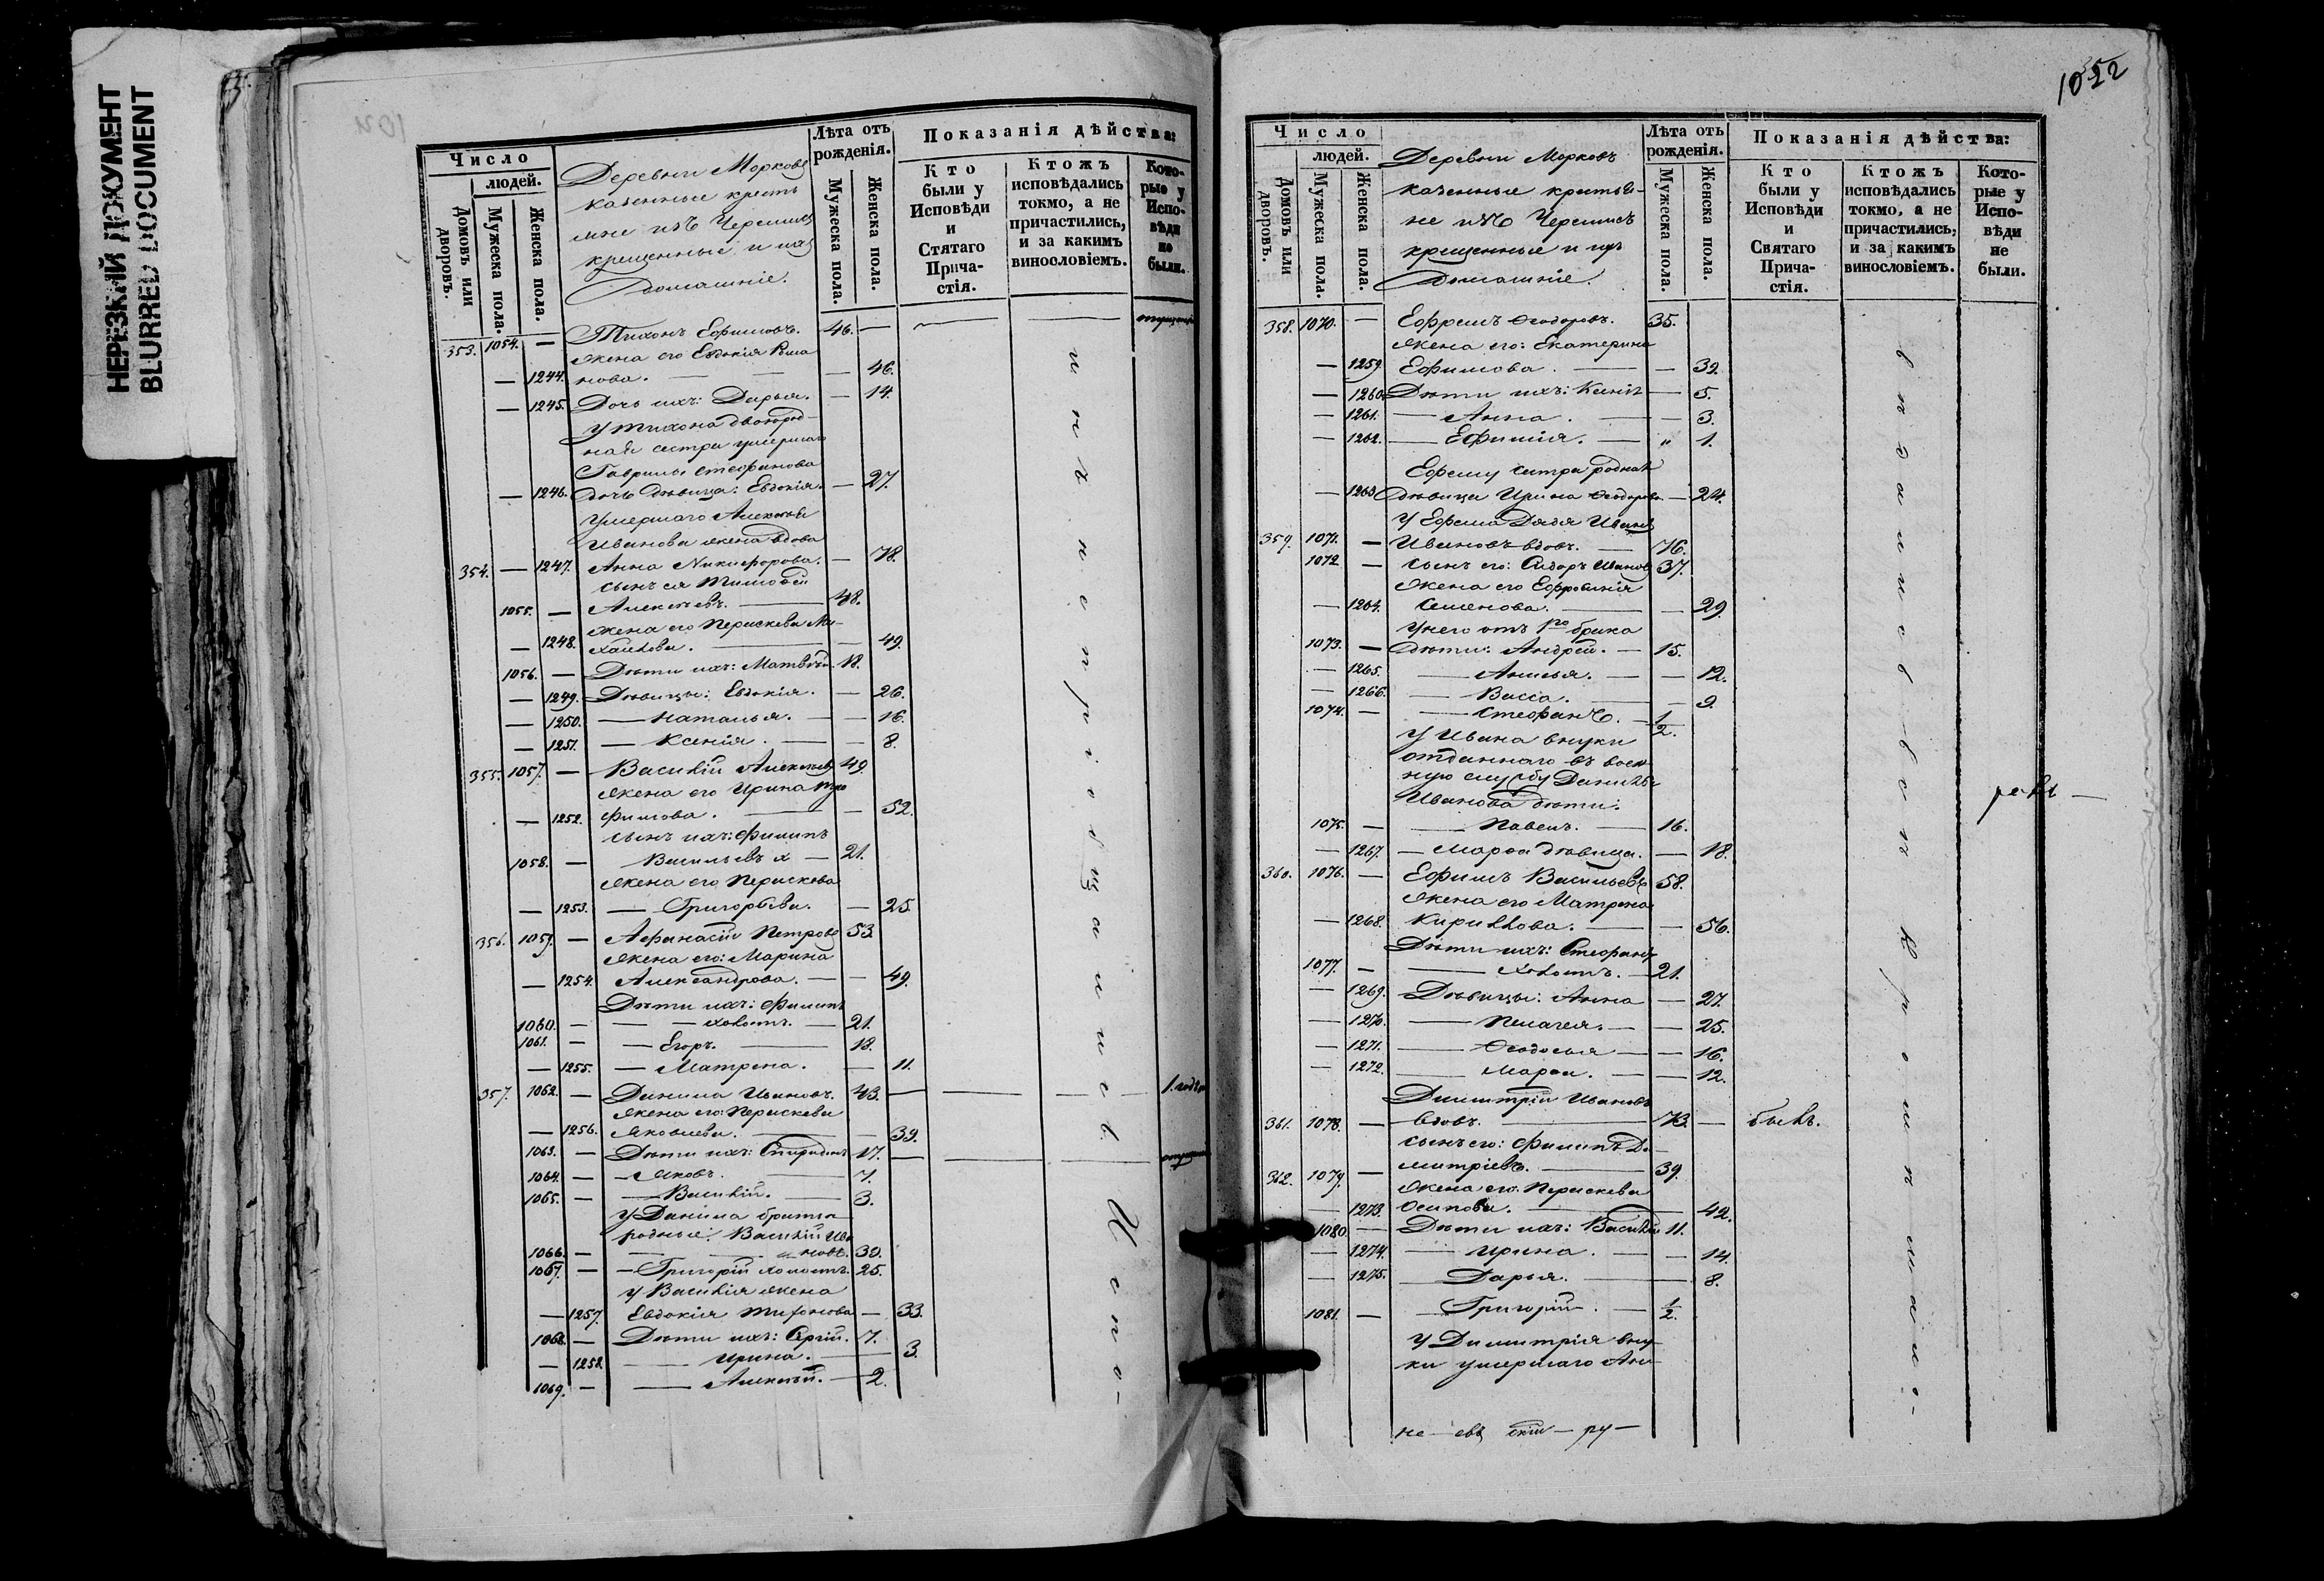 НЕРЕЗКИЙ ДОКУМЕНТ
BLURRED DOCUMENT
Число
людей.
Домовъ или дворовъ.
Мужеска пола.
Женска пола.
Деревни Морковъ
казенные кресть
яне изъ Черемисъ
крещенные и ихъ
домашніе.
Лѣта отъ рожденія.
Мужеска пола.
Женска пола.
Показанія дѣйства:
Кто были у Исповѣди и Стятаго Прича-стія.
Ктожъ исповѣдались токмо, а не причастились, и за какимъ винословіемъ.
Кото-рые у Испо-вѣди не были.
353. 1054. — Тихонъ Ефимовъ. 46. —
жена его Евдокія Рома
— 1244. нова. — — 46.
— 1245. Дочь ихъ: Дарья. — 14.
у Тихона двоюрод-
ная сестра умершаго
Гаврилы Стефанова
— 1246. дочь дѣвица: Евдокія. — 27.
умершаго Алексѣя
Иванова жена вдова
354. — 1247. Анна Никифорова. — 78.
сынъ ея Тимофей
1055. — Алексѣевъ. — 48.
жена его Перискева Ми-
— 1248. хайлова. — 49.
1056. — Дѣти ихъ: Матвѣй. 18.
— 1249. Дѣвицы: Евдокія. — 26.
— 1250. — Наталья. — 16.
— 1251. — Ксенія. — 8.
355. 1057. — Василій Алексѣевъ 49.
жена его Ирина Тро
— 1252. фимова. — 52.
сынъ ихъ: Филипъ
1058. — Васильевъ — 21.
жена его Перискева
— 1253. — Григорьева. — 25.
356. 1059. — Афанасій Петровъ 53.
жена его: Марина
— 1254. Александрова. — 49.
Дѣти ихъ: Филипъ
1060. — — холостъ. — 21.
1061. — — Егоръ. — 18.
— 1255. — Матрена. — 11.
357. 1062. — Данила Ивановъ. 43. —
жена его: Перискева
— 1256. Яковлева. — 39.
1063. — Дѣти ихъ: Спиридонъ 17. —
1064. — — Яковъ. — 7.
1065. — — Василій. — 3.
у Данила братья
родные: Василій Ива
1066. — — новъ. 30.
1067. — — Григорій холостъ. 25.
у Василія жена
— 1257. Евдокія Тихонова — 33.
1068. — Дѣти ихъ: Сергій. 7.
— 1258. — Ирина. — 3.
1069. — — Алексѣй. — 2.
и п ъ н е п р і о б щ а л и с ь. И с п о -
1022
Число
людей.
Домовъ или дворовъ.
Мужеска пола.
Женска пола.
Деревни Морковъ
казенные крестья-
не изъ Черемисъ
крещенные и ихъ
Домашніе.
Лѣта отъ рожденія.
Мужеска пола.
Женска пола.
Показанія дѣйства:
Кто были у Исповѣди и Святаго Прича-стія.
Ктожъ исповѣдались токмо, а не причастились, и за какимъ винословіемъ.
Кото-рые у Испо-вѣди не были.
358. 1070. — Ефремъ Ѳеодоровъ. 35.
жена его: Екатерина
— 1259. Ефимова. — 39.
— 1260. Дѣти ихъ: Ксенія — 5.
— 1261. — Анна. — 3.
— 1262. — Ефимія. — " 1.
Ефрему сестра родная
— 1263. дѣвица Ирина Ѳеодорова — 24.
у Ефрема дядя Иванъ
359. 1071. — Ивановъ вдовъ. — 76.
1072. — сынъ его: Сидоръ Ивановъ 37.
жена его Ефросинія
— 1264. Семенова. — 29.
у него отъ 1го брака
1073. — дѣти: Андрей. — 15.
— 1265. — Анисья. — 12.
— 1266. — Васса. — 9.
1074. — — Стефанъ. — 1/2.
у Ивана внуки
отданнаго въ воен
ную службу Данилы
Иванова дѣти:
1075. — — Павелъ. — 16.
— 1267. — Марѳа дѣвица. — 18.
360. 1076. — Ефимъ Васильевъ 58.
жена его Матрена
— 1268. Кирилова. — 56.
Дѣти ихъ: Стефанъ
1077. — — холостъ. — 21.
— 1269. Дѣвицы: Анна — 27.
— 1270. — Пелагея. — 25.
— 1271. — Ѳеодосья — 16.
— 1272. — Марѳа. — 12.
Димитрій Ивановъ
361. 1078. — вдовъ. — 73. — былъ.
сынъ его: Филипъ Ди-
362. 1079. — митріевъ. — 39.
жена его: Перискева
— 1273. Осипова. — 42.
1080. — Дѣти ихъ: Василій 11.
— 1274. — Ирина. — 14.
— 1275. — Дарья. — 8.
1081. — — Григорій. — 1/2.
у Димитрія вну-
ки умершаго